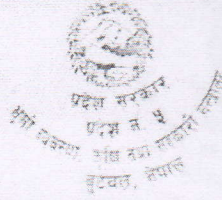 प्रदेश सरकार
प्रदेश नं. ५
भूमी व्यवस्था, कृषि तथा सहकारी मन्त्रालय
बुटवल, नेपाल